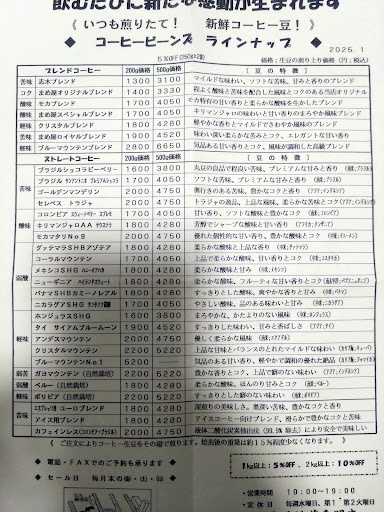 飲むたびに新たな感動が生まれます
《 いつも煎りたて！ 新鮮コーヒー豆！ 》
◆ コーヒービーンズ ラインナップ ◆
2025.1
5%OFF(250g×2個) 価格；生豆の煎り上り価格（円；税込）
ブレンドコーヒー 200g価格 500g価格 ［ 豆 の 特 徴 ］
苦味 志木ブレンド 1300 3100 マイルドな味わい、ソフトな苦味、甘みと香りのブレンド
コク まめ屋オリジナルブレンド 1400 3330 程よく酸味と苦味を配合した風味とコクのある当店オリジナル
酸味 モカブレンド 1700 4050 モカ特有の甘い香りと柔らかな酸味を生かしたブレンド
酸味 まめ屋スペシャルブレンド 1700 4050 キリマンジャロの味わいと甘い香りのまろやか風味ブレンド
軽味 クリスタルブレンド 1800 4280 軽やかな香りとマイルドでさわやか風味のブレンド
苦味 まめ屋ロイヤルブレンド 1900 4520 味わい深い柔らかな苦みとコク、エレガントな甘い香り
軽味 ブルーマウンテンブレンド 2800 6650 気品ある甘い香りとコク、風味が調和した高級ブレンド
ストレートコーヒー 200g価格 500g価格 ［ 豆 の 特 徴 ］
ブラジルショコラピーベリー 1600 3800 丸豆の良品で程良い苦味、プレミアムな甘みと香り
1700 4050 ソフトな苦味、プレミアムな甘みと香り
苦味 ゴールデンマンデリン 2000 4750 奥行きのある苦味、豊かなコクと香り
セレベス トラジャ 2000 4750 トラジャの逸品、上品な風味、
コロンビア 1700 4050 甘い香り、ソフトな酸味と豊かなコク
酸味 キリマンジャロAA 1800 4280 芳醇でシャープな酸味と甘い香り
モカマタリNo9 2000 4750 優れた個性的な甘い香り、豊かな酸味とコク
グァテマラSHBアゾテア 1800 4280 柔らかな酸味と上品な香り
コーラルマウンテン 1700 4050 柔らかな酸味と甘い香りとコク
メキシコSHG 1800 4280 柔らかな酸味と甘み
弱酸 ニューギニア 1800 4280 柔らかな酸味、フルーティな甘い香りとコク
パナマSHBボニータ・ノレアル 1800 4280 すっきりとした酸味、爽やかな香りと甘み
ニカラグアSHG 1900 4510 やさしい酸味、品のある味わいと甘み
ホンジュラスSHG 1600 3800 まろやかな、かたよりのない風味
タイ サイアムブルームーン 1900 4510 すっきりした味わい、甘みと香ばしさ
軽味 アンデスマウンテン 2000 4750 優しく柔らかな風味
クリスタルマウンテン 2200 5220 上品な甘味とバランスのとれたマイルドな味わい
ブルーマウンテンNo1 気品のある甘い香り、軽やかで調和の優れた絶品
弱苦 ガヨマウンテン（自然栽培） 2200 5220 豊かな香りとコク、上品で癖のない味わい
弱酸 ペルー（自然栽培） 1800 4280 柔らかな酸味、ほんのり甘みとコク
軽味 ボリビア（自然栽培） 2200 5220 すっきりとした癖のない味わい
苦味 ユーロブレンド 1800 4280 深煎りの美味しさ、奥深い苦味、豊かなコク
アイス用ブレンド 1800 4280 アイスコーヒー向けブレンド、滑らかで豊かなコクと苦味
カフェインレス 2000 4750 液体二酸化炭素抽出法（99.9%除去）により安全で美味しい
《 ご注文によりコーヒー生豆をその場で煎ります。焙煎後の重量は約15％程度少なくなります。》
◆ 電話・FAXでのご予約も承ります
1kg以上；5%OFF、2kg以上；10%OFF
◆ セール日 毎月末の㊎・㊏・㊐
◆営業時間 10:00～19:00
◆定休日 毎週水曜日、第1・第2火曜日